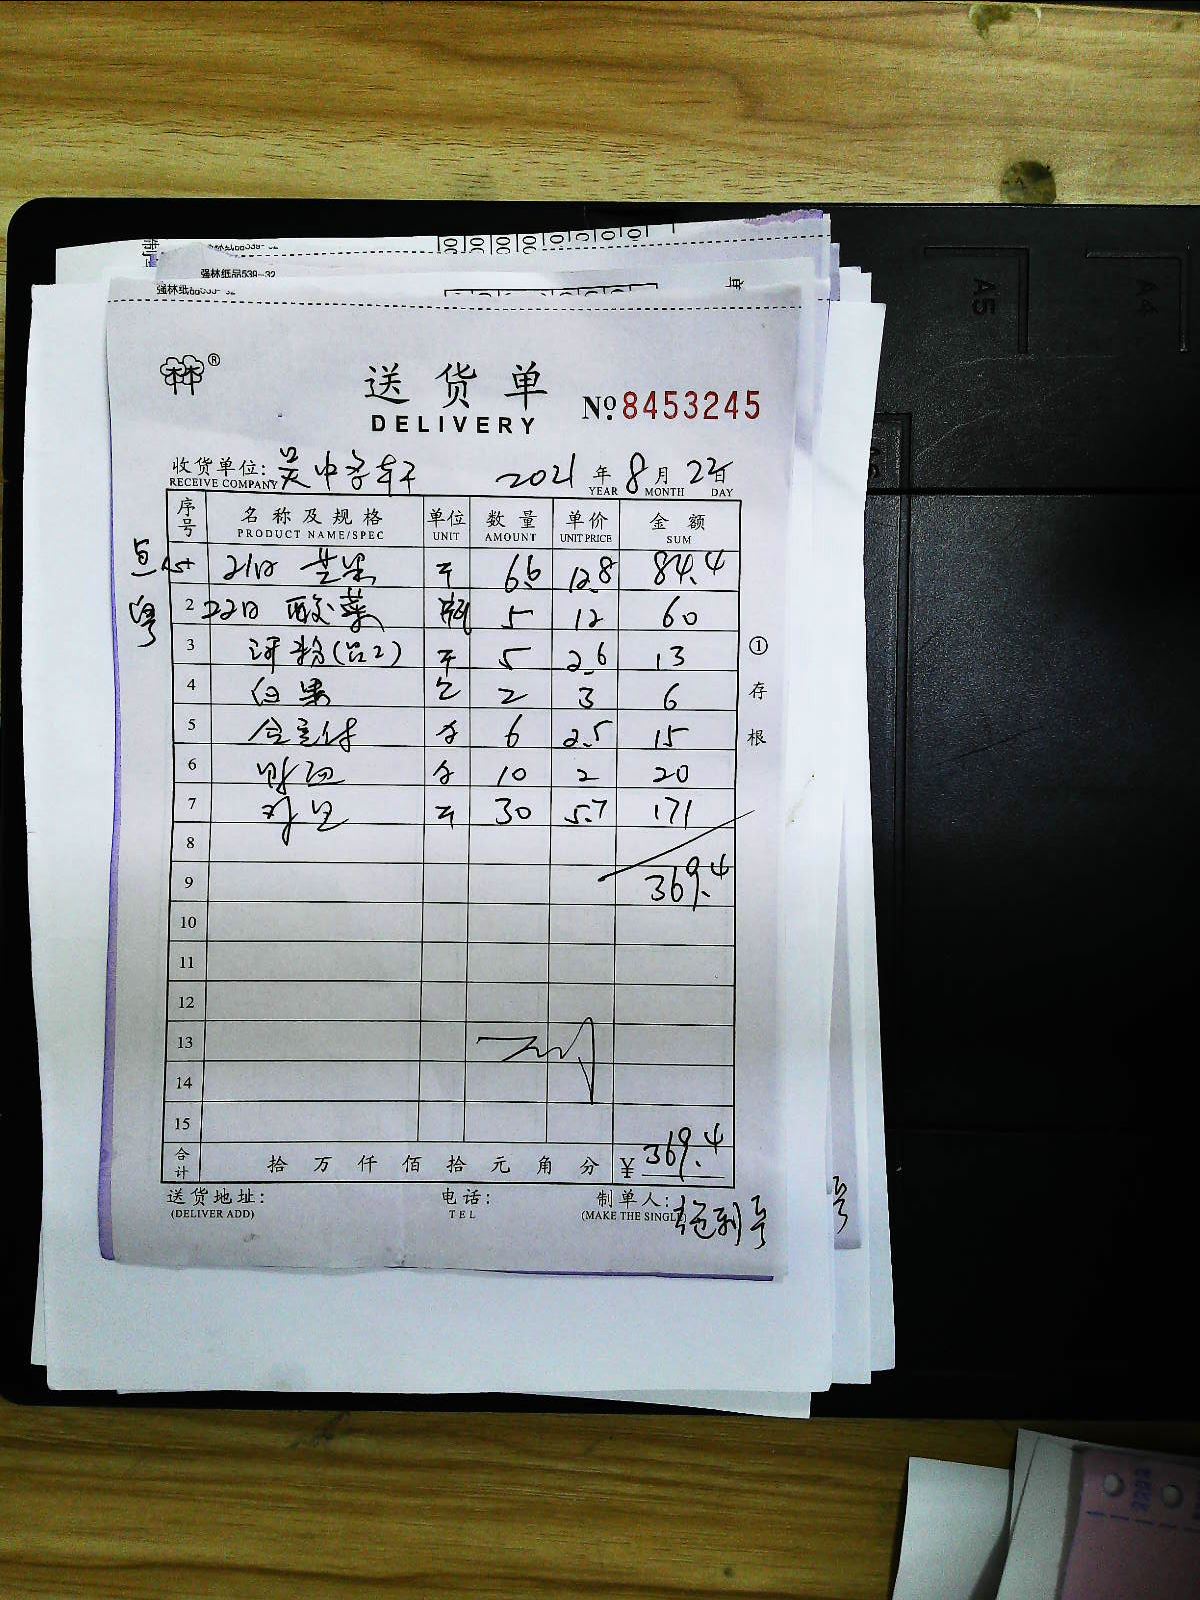 强林纸品539-32
强林纸品539-32
送货单
DELIVERY
№ 8453245
收货单位:
RECEIVE COMPANY
2021年8月22日
YEAR MONTH DAY
序号 名称及规格 单位 数量 单价 金额
PRODUCT NAME/SPEC UNIT AMOUNT UNIT PRICE SUM
点心 21日 芒果 斤 6.6 12.8 84.4
2 22日 酸菜 瓶 5 12 60
3 斤 5 2.6 13
4 白果 2 3 6
5 6 2.5 15
6 10 2 20
7 斤 30 5.7 171
8
9 369.4
10
11
12
13
14
15
合计 拾万仟佰拾元角分 ¥ 369.4
送货地址: 电话: 制单人:
(DELIVER ADD) TEL (MAKE THE SINGLE)
①存根
A5
A4